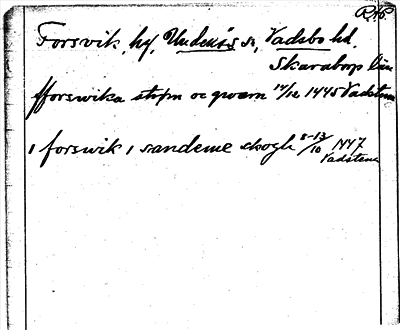 R.Ap.
Forsvik, by, Undenäs sn, Vadsbo hd.
Skaraborgs län
fforswika strøm oc qwærn 14/12 1445 Vadstena
i forswik i vandeme skogh 8-13/10 1447
Vadstena